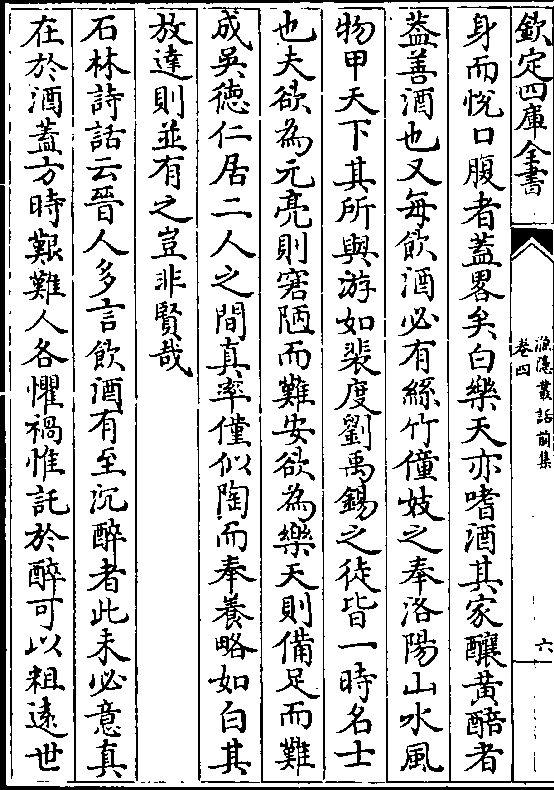 欽定四庫全書
漁隱叢話前集
卷四
六
身而悅口腹者蓋畧矣白樂天亦嗜酒其家釀黃醅者
葢善酒也又每飲酒必有絲竹僮妓之奉洛陽山水風
物甲天下其所與游如裴度劉禹錫之徒皆一時名士
也夫欲為元亮則窘陋而難安欲為樂天則備足而難
成吳徳仁居二人之間真率僅似陶而奉養略如白其
放達則並有之豈非賢哉
石林詩話云晉人多言飲酒有至沉醉者此未必意真
在於酒蓋方時艱難人各懼禍惟託於醉可以粗遠世